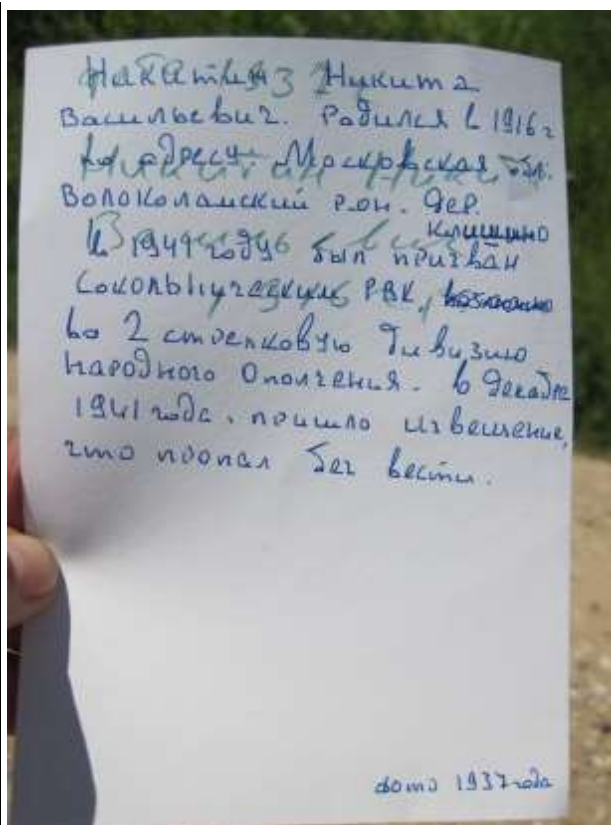 Никита
Васильевич. Родился в 1916 г
по адресу Московская обл.
Волоколамский р-он. дер.
Клишино
В 1941 году был призван
Сокольническим РВК, возможно
во 2 стрелковую дивизию
Народного Ополчения. В декабре
1941 года. пришло извещение,
что пропал без вести.
фото 1937 года